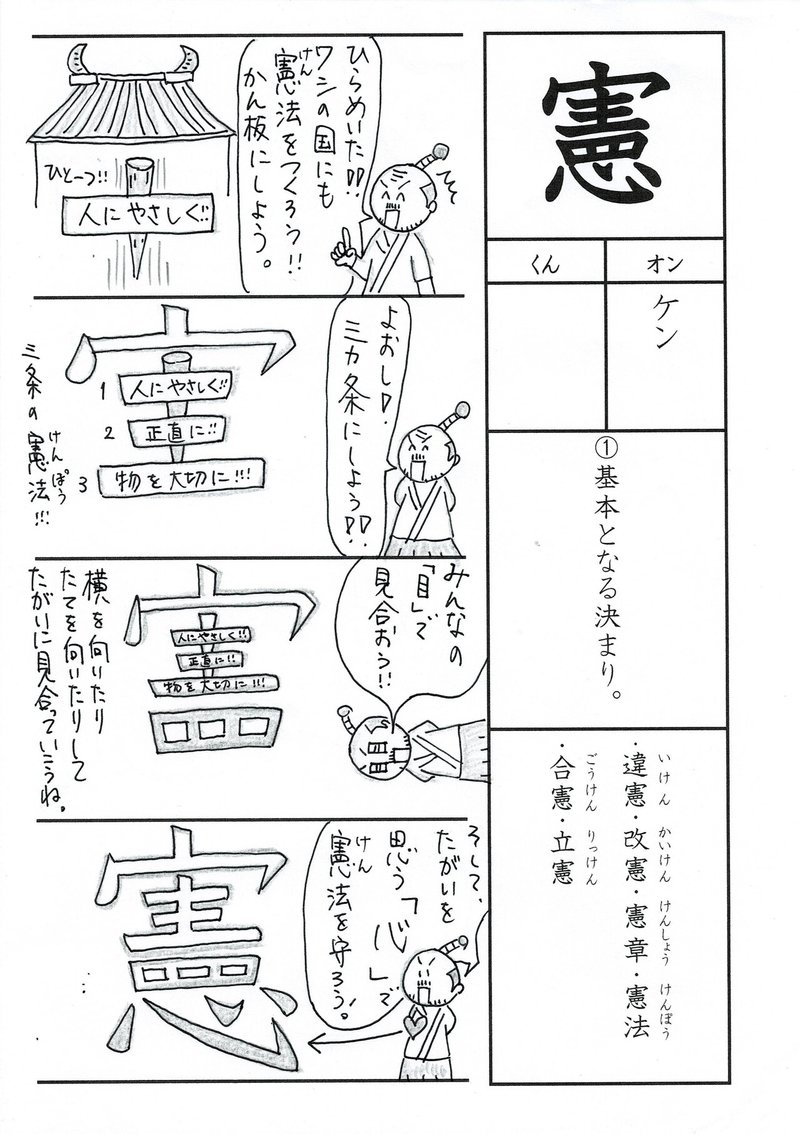 憲
オン
くん
ケン
①基本となる決まり。
・違憲・改憲・憲章・憲法
いけん かいけん けんしょう けんぽう
・合憲・立憲
ごうけん りっけん
ひらめいた!!
ワシの国にも
憲法をつくろう!!
けん
かん板にしよう。
ひとーつ!!
人にやさしく!!
よおし!
三カ条にしよう!!
1 人にやさしく!!
2 正直に!!
3 物を大切に!!!
三条の憲法!!!
けんぽう
みんなの
「目」で
見合おう!!
人にやさしく!!
正直に!!
物を大切に!!!
横を向いたり
たてを向いたりして
たがいに見合っていこうね。
そして、
たがいを
思う「心」で
憲法を守ろう!
けん
憲